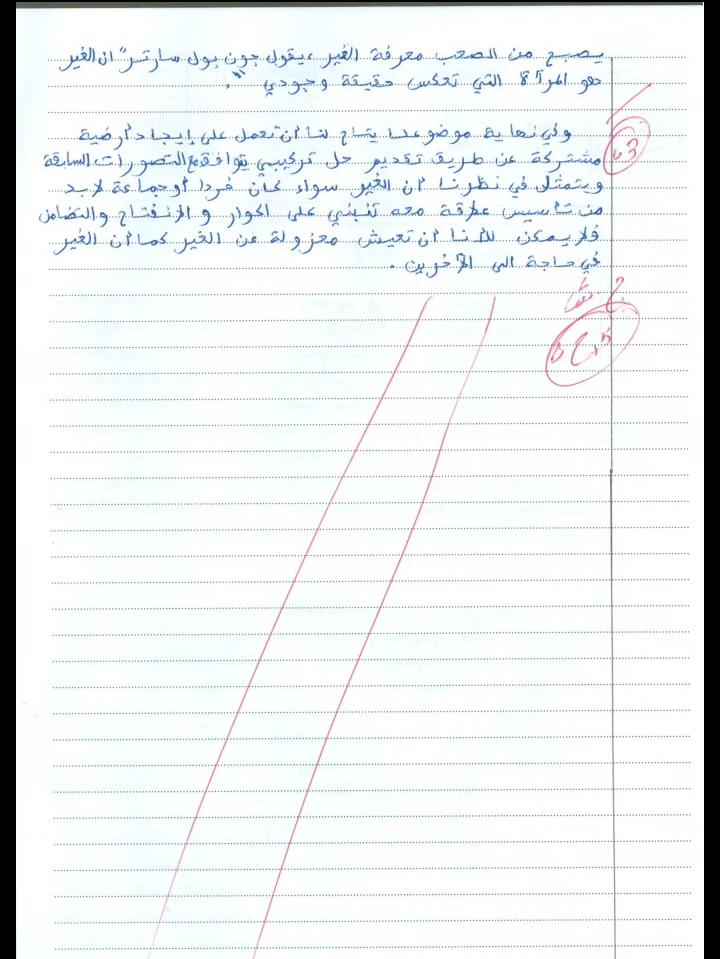 يصبح من الصعب معرفة الغير ، يقول جون بول سارتر "ان الغير
هو المرآة التي تعكس حقيقة وجودي".
وفي نهاية موضوعنا يتاح لنا أن نعمل على إيجاد أرضية
مشتركة عن طريق تقديم حل تركيبي يتوافق مع التصورات السابقة
ويتمثل في نظرنا أن الغير سواء كان فردا أو جماعة لابد
من تأسيس علاقة معه تنبني على الحوار والانفتاح والتضامن
فلا يمكن للأنا أن تعيش معزولة عن الغير كما أن الغير
في حاجة الى الآخرين .
03